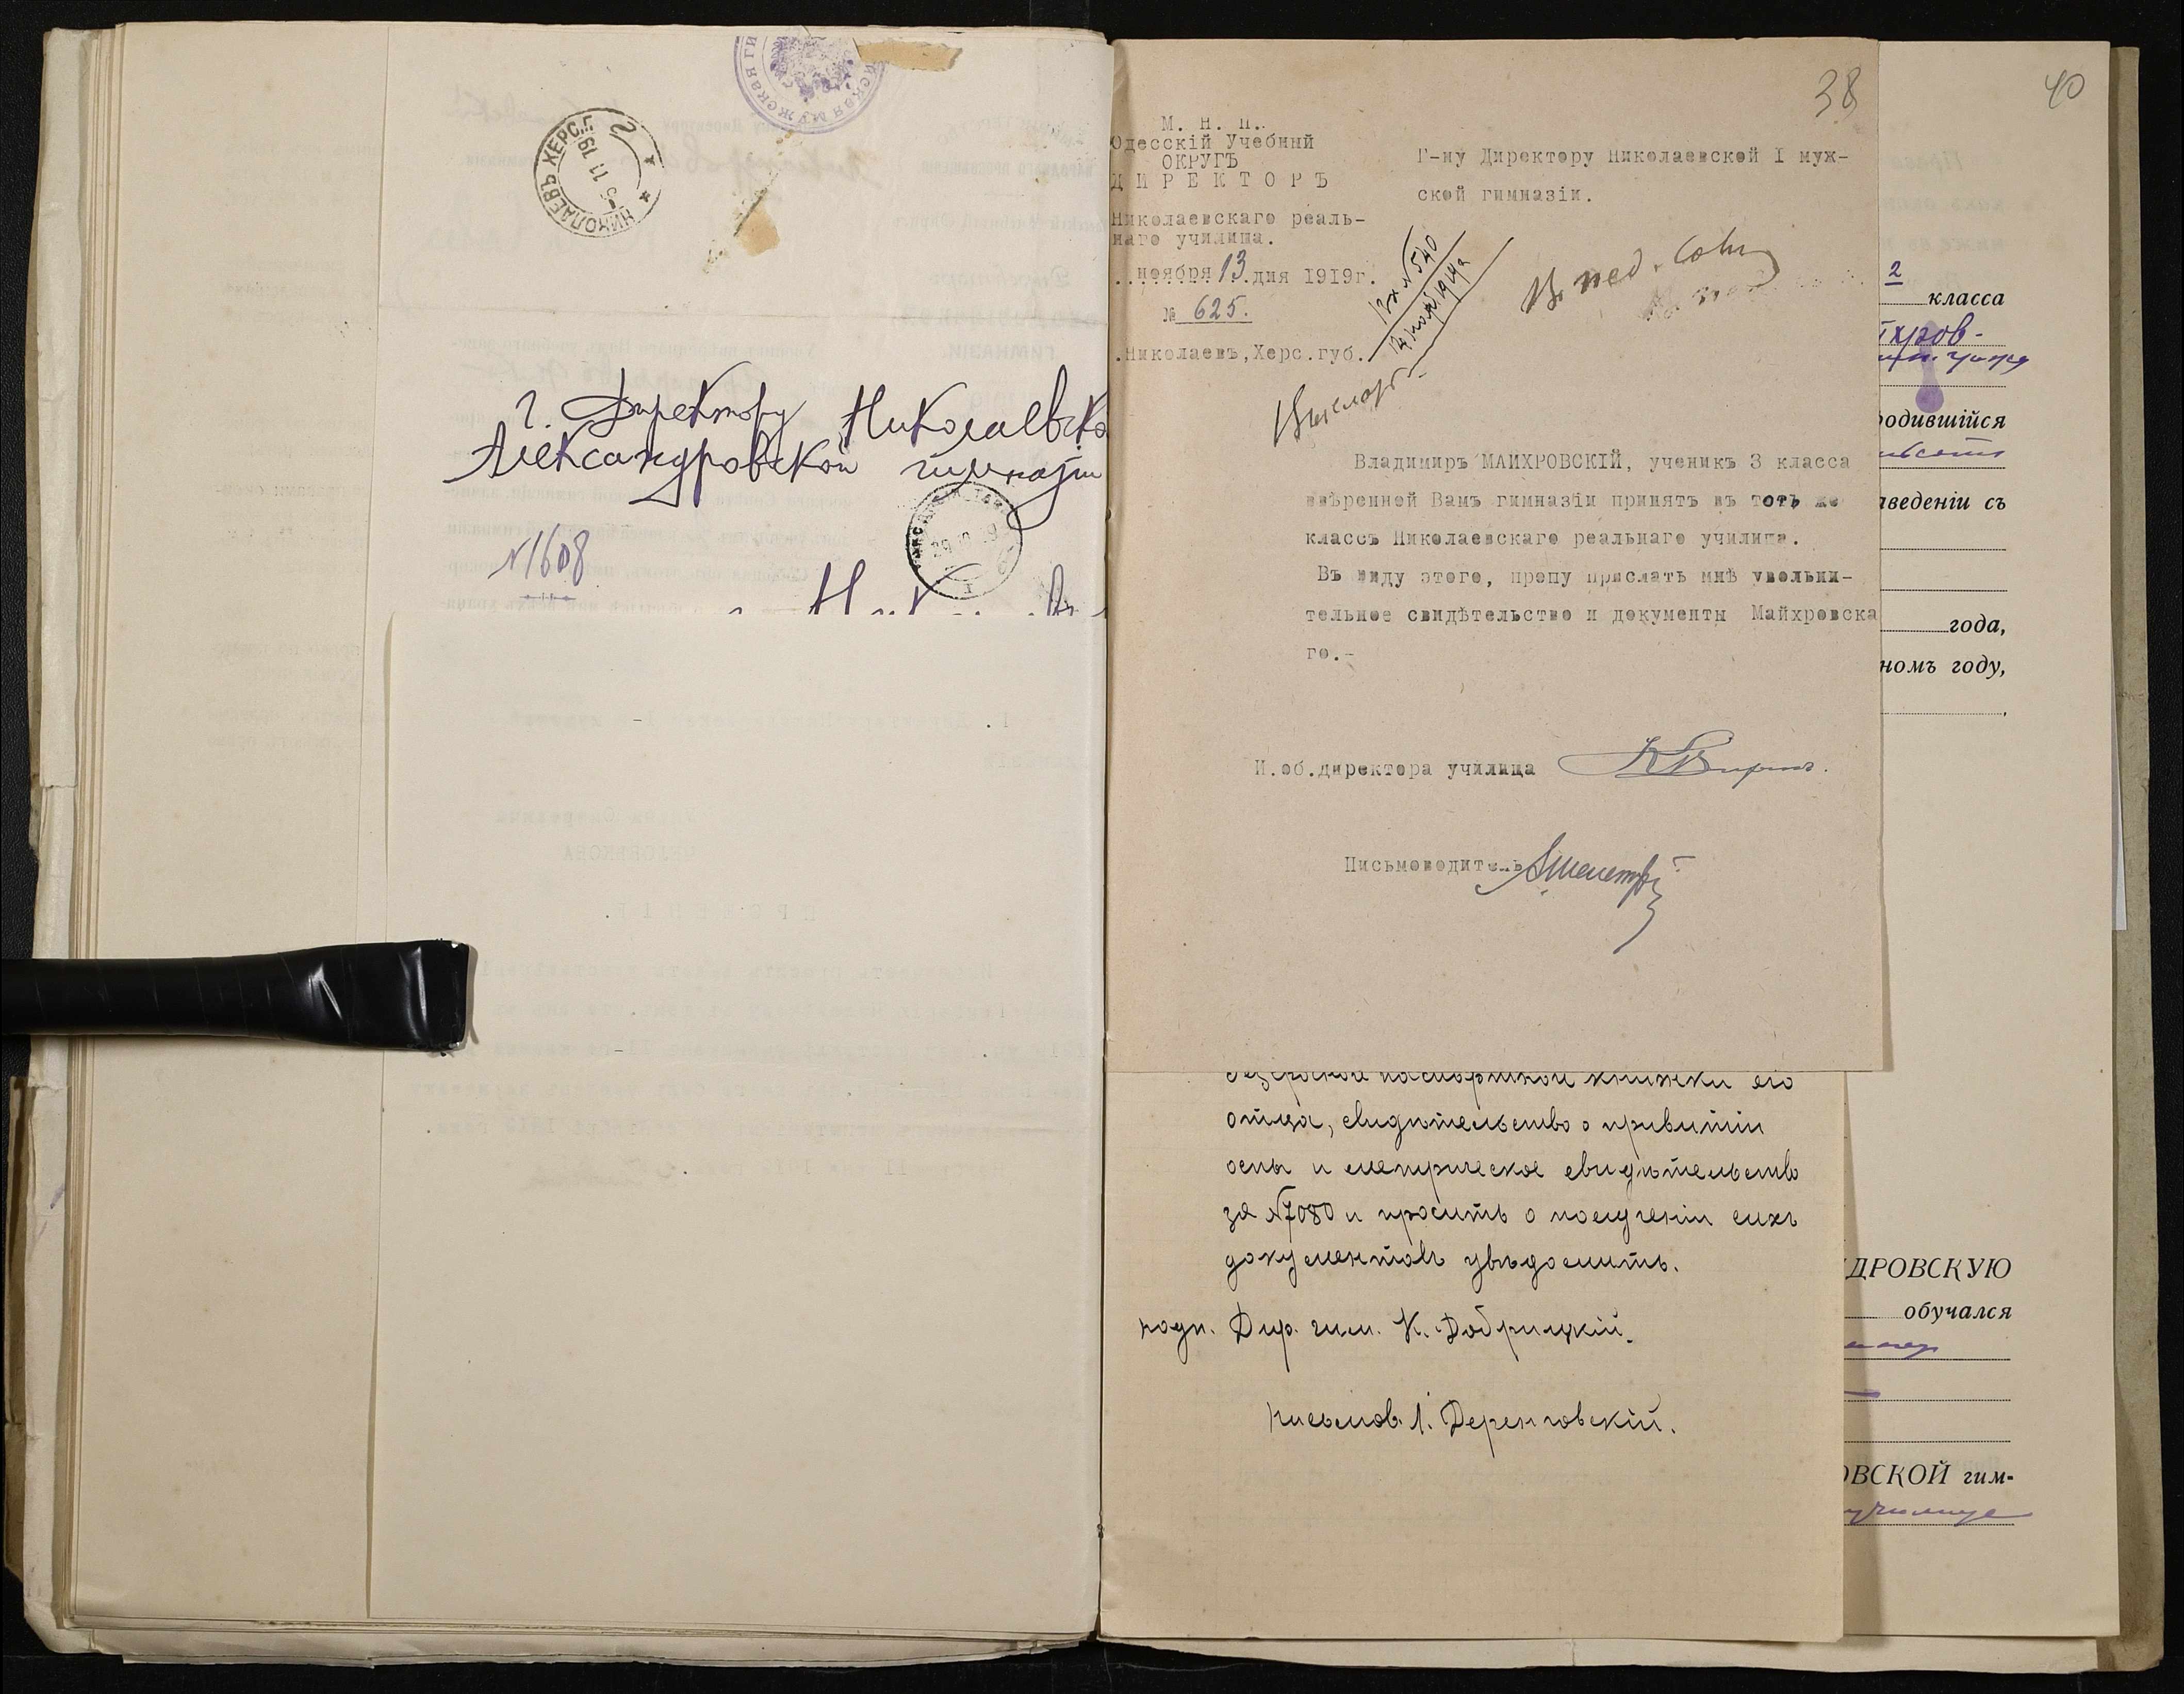 НИКОЛАЕВЪ ХЕРС.Г.
5 11 19
г. Директору Николаевско
Александровской гимназіи
№1608
38
М. Н. П.
Одесскій Учебный
ОКРУГЪ
ДИРЕКТОРЪ
Николаевскаго реаль-
наго училища.
ноября 13 дня 1919г.
№ 625.
Николаевъ, Херс.губ.
Г-ну Директору Николаевской I муж-
ской гимназіи.
Вх №540
Въ пед.
Владимиръ МАЙХРОВСКІЙ, ученикъ 3 класса
ввѣренной Вамъ гимназіи принятъ въ тотъ же
классъ Николаевскаго реальнаго училища.
Въ виду этого, прошу прислать мнѣ увольни-
тельное свидѣтельство и документы Майхровска
го.-
И.об.директора училища
Письмоводитель
отца, свидѣтельство о привитіи
оспы и метрическое свидѣтельство
за №7080 и проситъ о полученіи сихъ
документовъ увѣдомить.
подп. Дир. гим. К. Добрицкій.
Письмов. Л. Деренговскій.
40
2
класса
йхров-
родившійся
аведеніи съ
года,
номъ году,
ДРОВСКУЮ
обучался
ОВСКОЙ гим-
училище